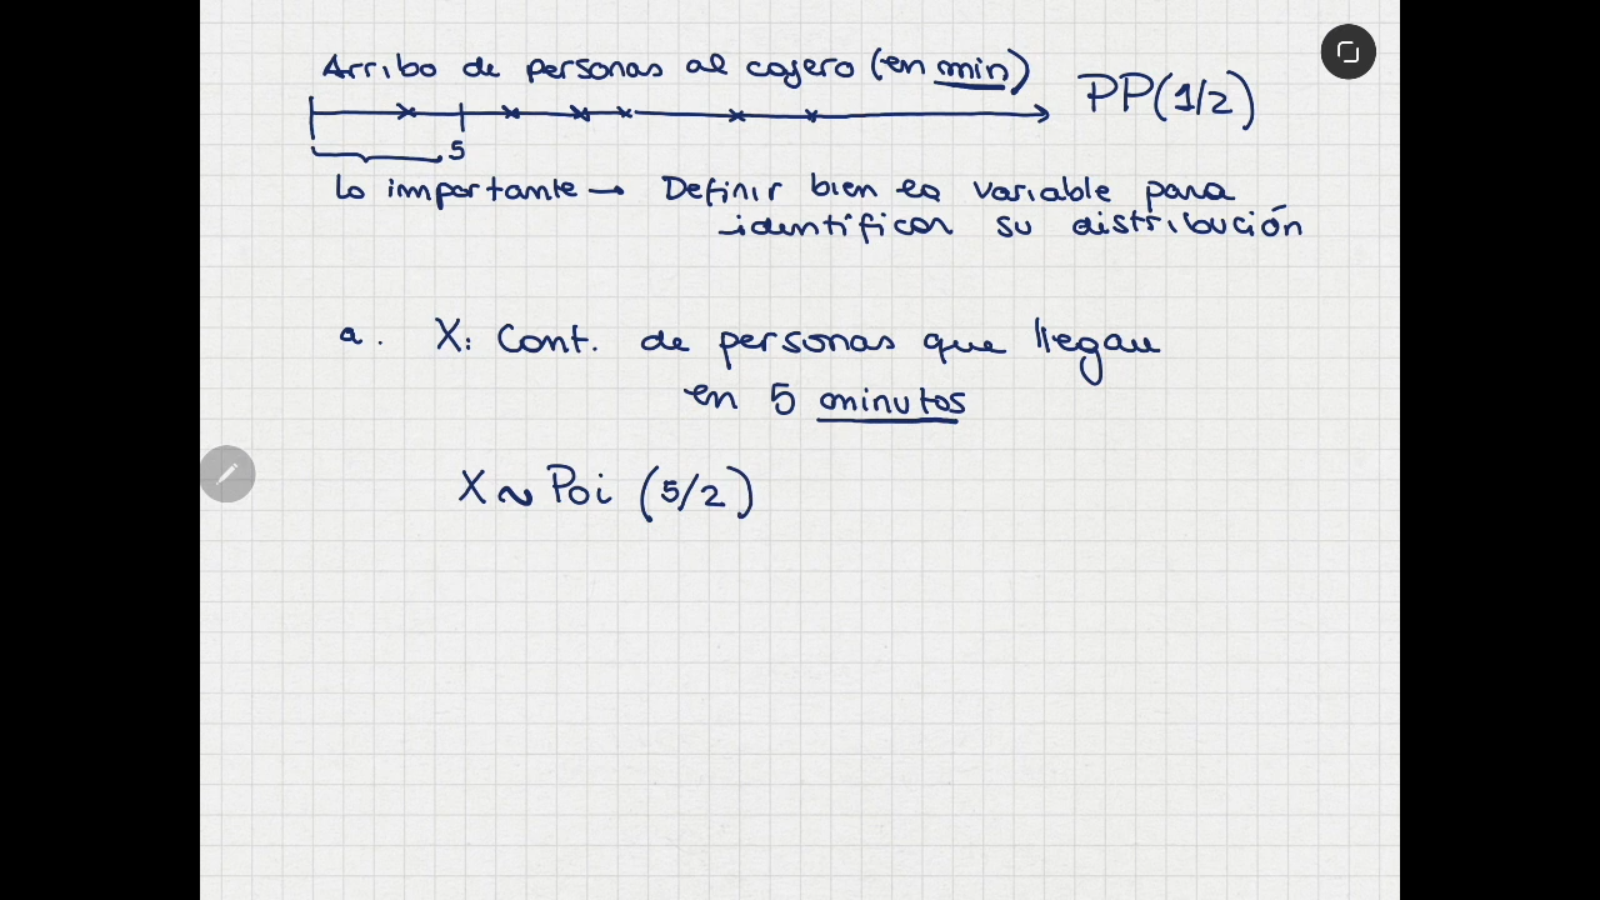 Arribo de personas al cajero (en min) PP(1/2)
5
Lo importante → Definir bien la variable para
identificar su distribución
a. X: Cant. de personas que llegan
en 5 minutos
X ~ Poi (5/2)